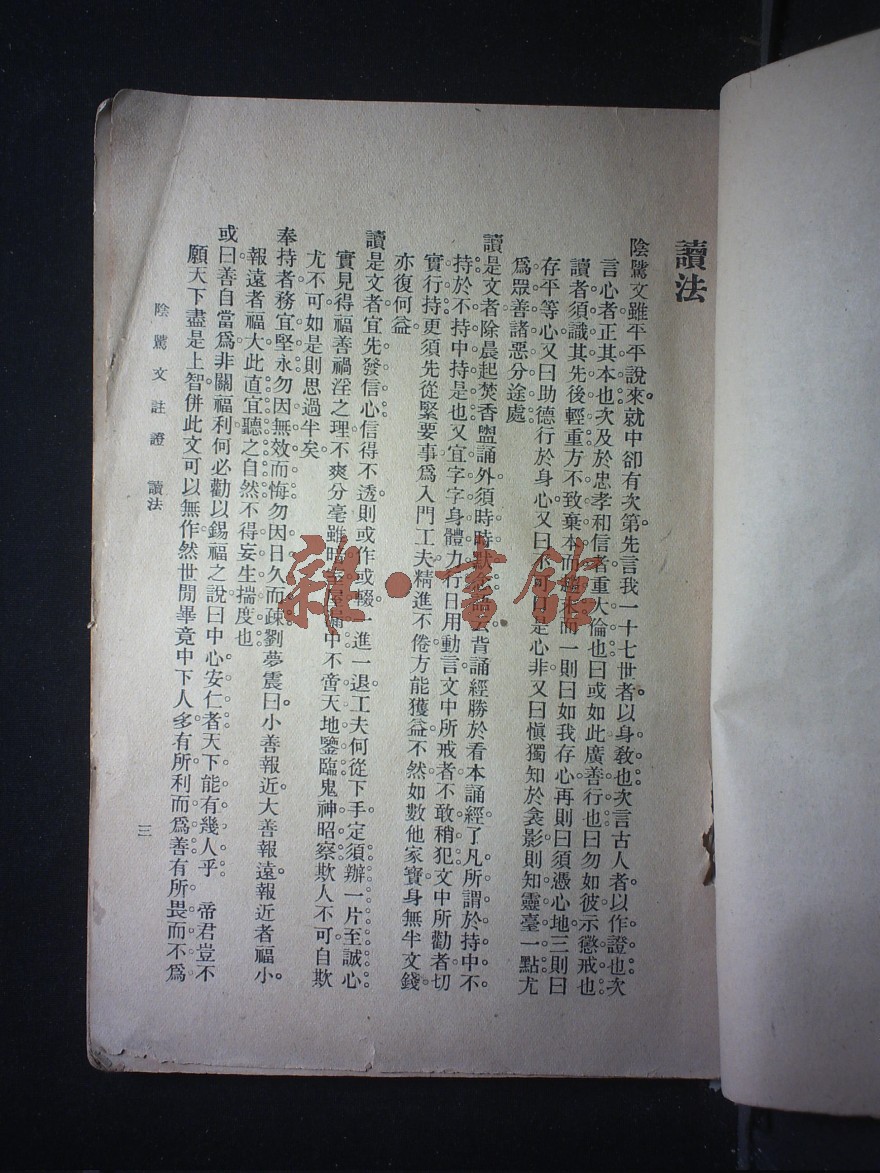 讀法
陰騭文雖平平說來。就中卻有次第。先言我一十七世者以身教也。次言古人者以作證也。次
言心者正其本也。次及於忠孝和信者重大倫也。曰或如此廣善行也。曰勿如彼示懲戒也。
讀者須識其先後輕重方不致棄本而趨末。而一則曰如我存心再則曰須憑心地三則曰
存平等心又曰助德行於身心又曰不可口是心非又曰愼獨知於衾影則知靈臺一點尤
爲眾善諸惡分途處。
讀是文者除晨起焚香盥誦外須時時默 背誦經勝於看本誦經。了凡所謂於持中不
持於不持中持是也。又宜字字身體力行日用動言文中所戒者不敢稍犯文中所勸者切
實行持更須先從緊要事爲入門工夫精進不倦方能獲益。不然如數他家寶身無半文錢。
亦復何益。
讀是文者宜先發信心信得不透。則或作或輟一進一退工夫何從下手定須辦一片至誠心
實見得福善禍淫之理不爽分毫雖暗室屋漏中不啻天地鑒臨鬼神昭察欺人不可自欺
尤不可如是則思過半矣。
奉持者務宜堅永勿因無效而悔勿因日久而疎。劉夢震曰小善報近大善報遠。報近者福小。
報遠者福大此直宜聽之自然不得妄生揣度也
或曰善自當爲非關福利何必勸以錫福之說曰中心安仁者天下能有幾人乎。 帝君豈不
願天下盡是上智併此文可以無作然世閒畢竟中下人多有所利而爲善有所畏而不爲
陰騭文註證 讀法
三
雜·書館